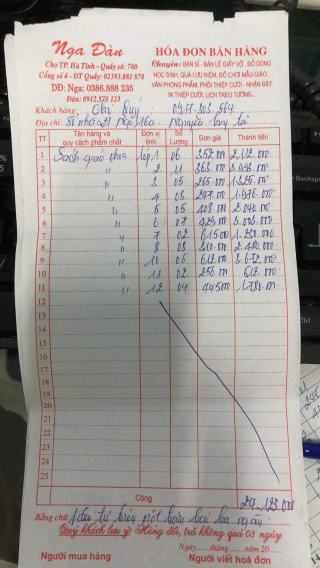 Nga Đàn
Chợ TP. Hà Tĩnh - Quầy số: 780
Cổng số 4 - ĐT Quầy: 02393.881 878
DĐ: Nga: 0386.888 235
Đàn: 0912.575 123
HÓA ĐƠN BÁN HÀNG
Chuyên: BÁN SỈ - BÁN LẺ GIẤY VỞ, ĐỒ DÙNG
HỌC SINH, QUÀ LƯU NIỆM, ĐỒ CHƠI MẪU GIÁO,
VĂN PHÒNG PHẨM, PHÔI THIỆP CƯỚI - NHẬN ĐẶT
IN THIỆP CƯỚI, LỊCH TREO TƯỜNG...
Khách hàng: Chị Quý 0917.303.567
Địa chỉ: Số nhà 21 Nguyễn
TT Tên hàng và quy cách phẩm chất Đơn vị tính Số Lượng Đơn giá Thành tiền
1 Sách giáo khoa lớp 1 06 352.000 2.112.000
2 " 2 11 363.000 3.993.000
3 " 3 05 265.000 1.325.000
4 " 4 08 247.000 1.976.000
5 " 5 05 408.000 2.040.000
6 " 6 07 429.000 3.003.000
7 " 7 02 615.000 1.230.000
8 " 8 08 310.000 2.480.000
9 " 10 06 612.000 3.672.000
10 " 11 02 256.000 512.000
11 " 12 04 445000 1.780.000
12
13
14
15
16
17
18
19
20
21
22
23
24
25
Cộng 24.123.000
Bằng chữ: Hai tư triệu một trăm hai ba ngàn
Quý khách lưu ý: Hàng đổi, trả không quá 03 ngày
Ngày......tháng......năm 20.....
Người mua hàng Người viết hoá đơn